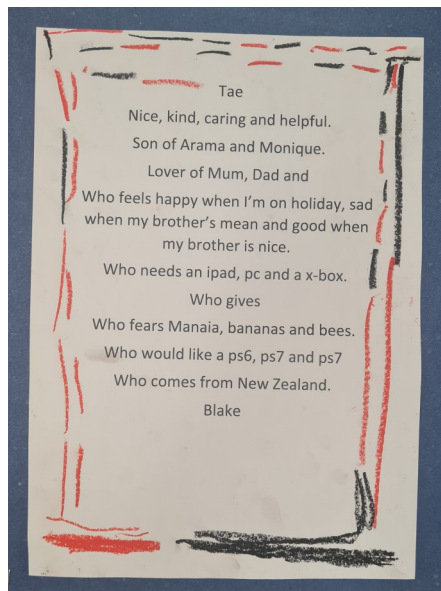 Tae
Nice, kind, caring and helpful.
Son of Arama and Monique.
Lover of Mum, Dad and
Who feels happy when I'm on holiday, sad
when my brother's mean and good when
my brother is nice.
Who needs an ipad, pc and a x-box.
Who gives
Who fears Manaia, bananas and bees.
Who would like a ps6, ps7 and ps7
Who comes from New Zealand.
Blake